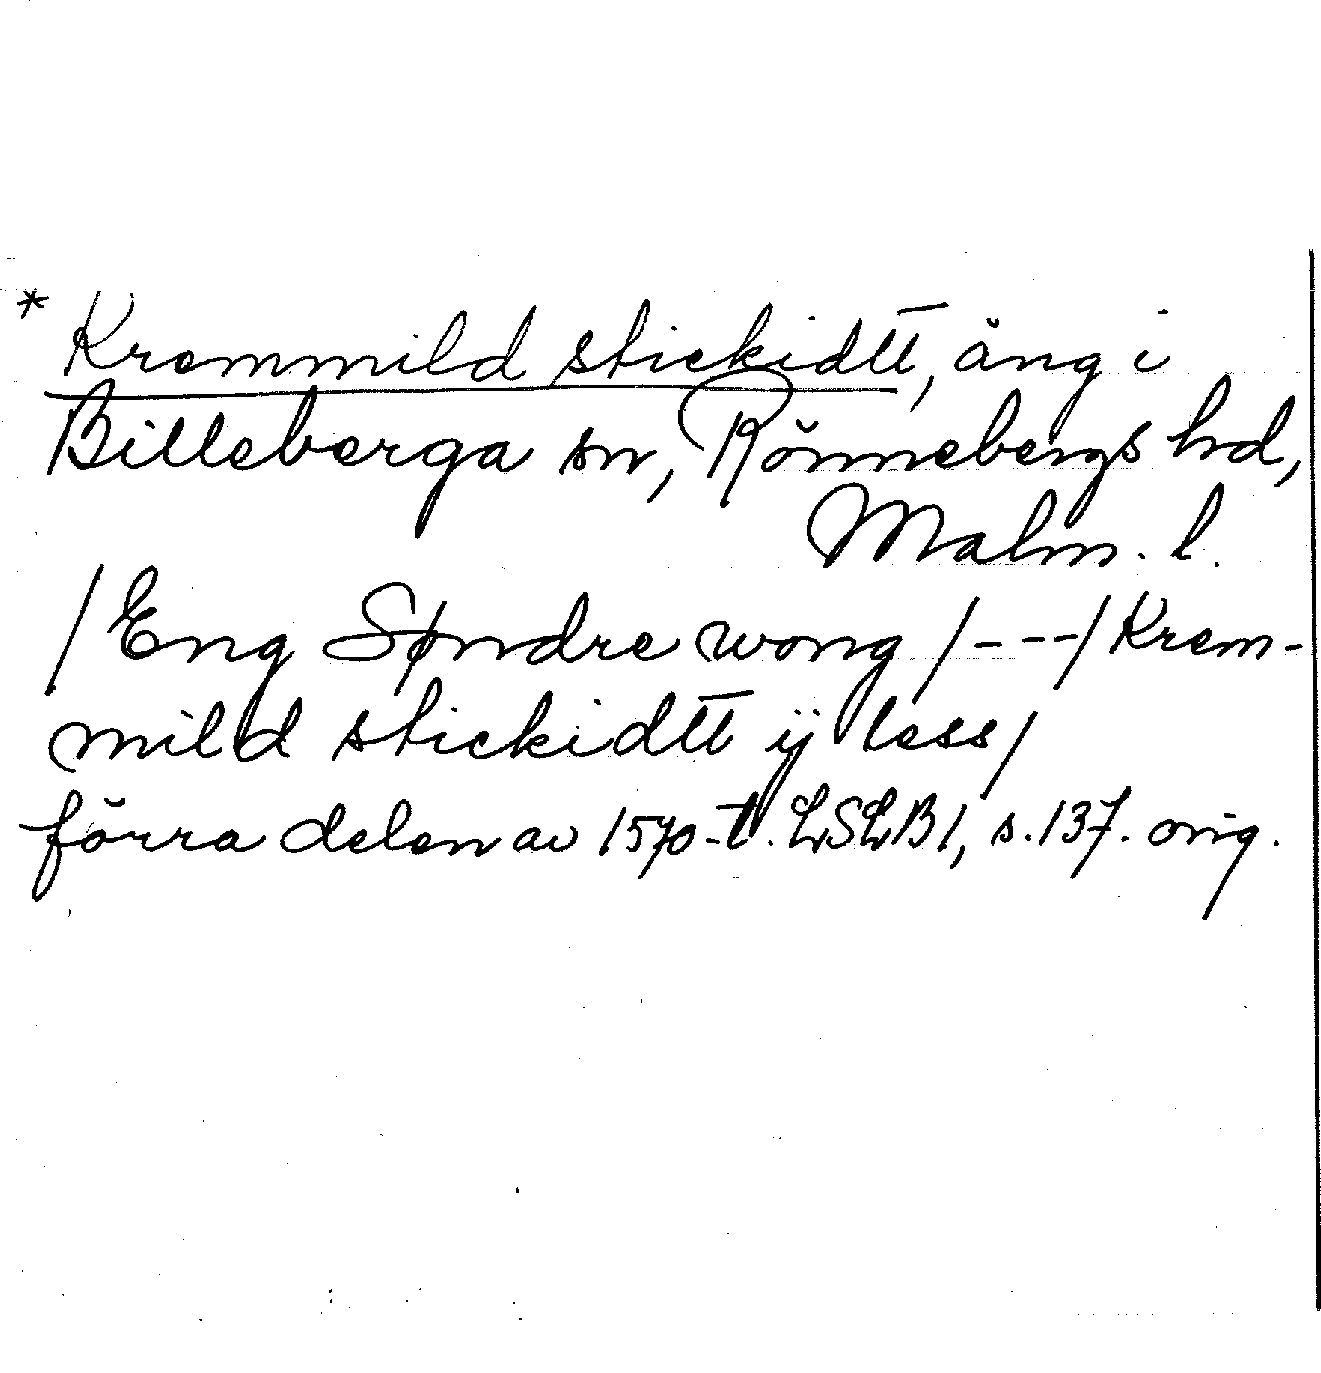 * Kremmild stickidtt, äng i
Billeberga sn, Rönnebergs hd,
Malm. l.
/Eng Søndre wong /---/ Krem-
mild stickidtt ij less/
förra delen av 1570-t. LSLB1, s. 137. orig.